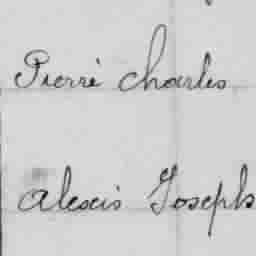 Pierré Charles
Alexis Joseph